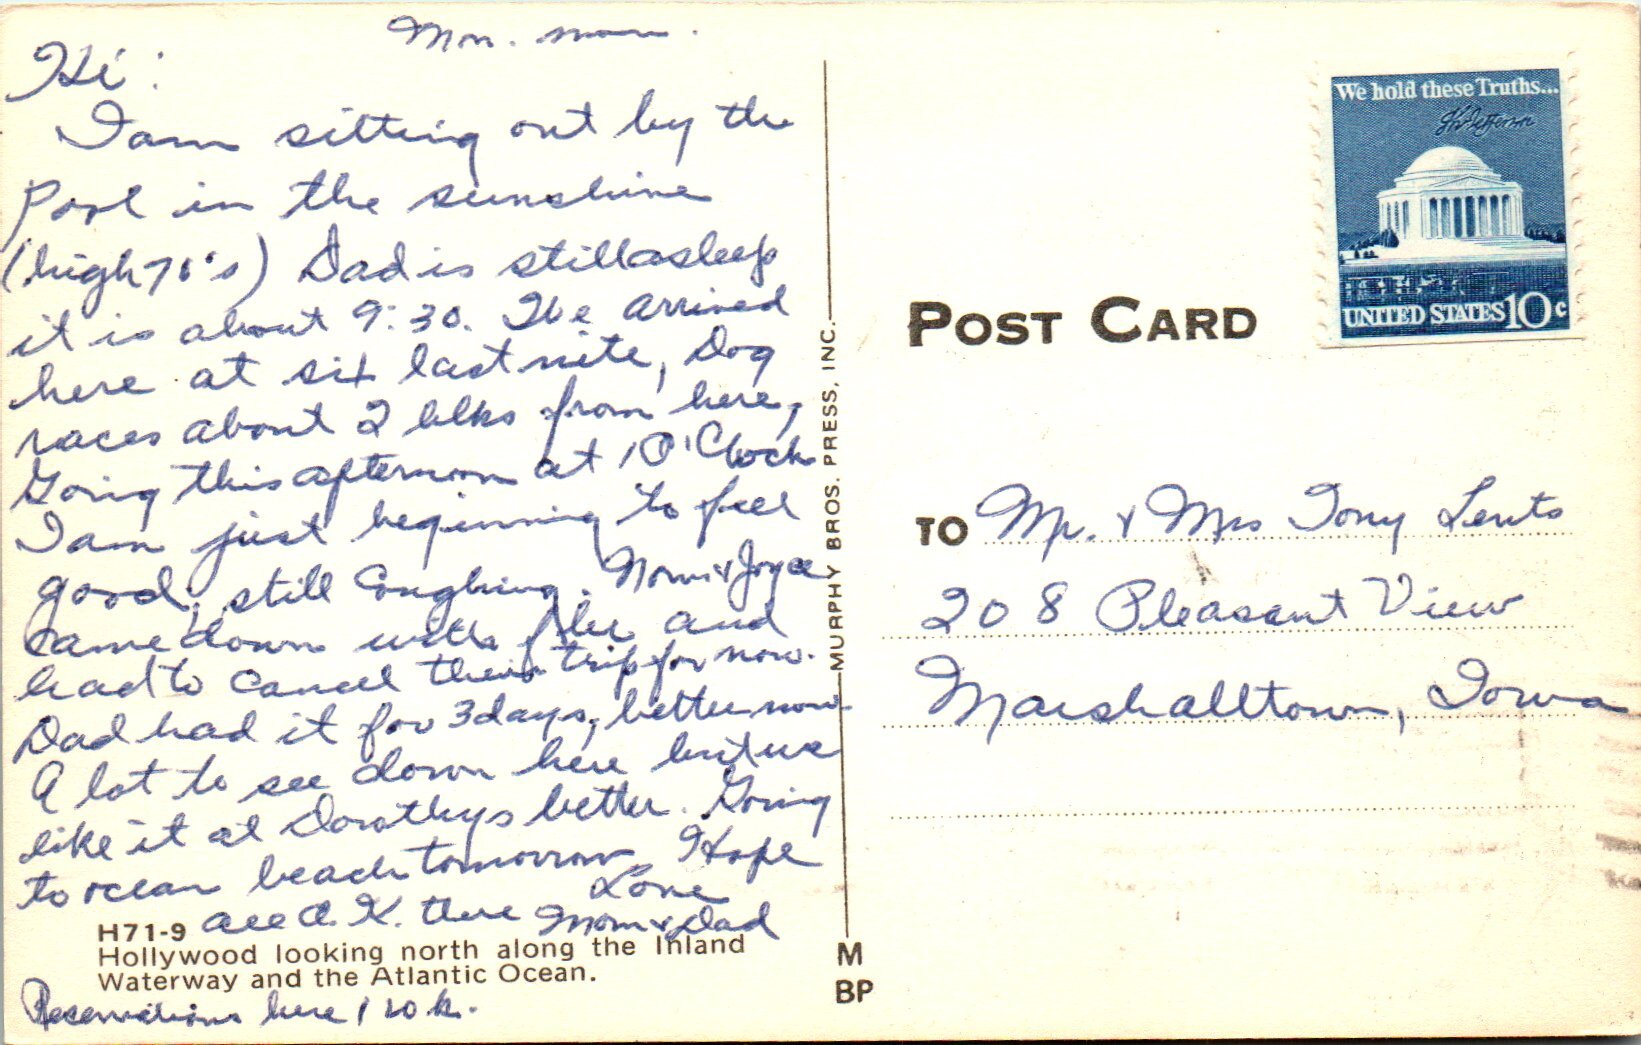 Mon. morn.
Hi:
I am sitting out by the
Pool in the sunshine
(high 70's) Dad is still asleep
it is about 9:30. We arrived
here at six last nite, Dog
races about 2 blks from here,
Going this afternoon at 1 O'Clock
I am just beginning to feel
good, still coughing. Norm & Joyce
came down with flu and
had to cancel their trip for now.
Dad had it for 3 days, better now
A lot to see down here but we
like it at Dorothys better. Going
to ocean beach tomorrow. Hope
all O.K. there Love
Mom & Dad
H71-9
Hollywood looking north along the Inland
Waterway and the Atlantic Ocean.
Reservations here 1 wk.
MURPHY BROS. PRESS, INC.
M
BP
POST CARD
We hold these Truths...
Th Jefferson
UNITED STATES 10c
TO Mr. & Mrs Tony Lents
208 Pleasant View
Marshalltown, Iowa